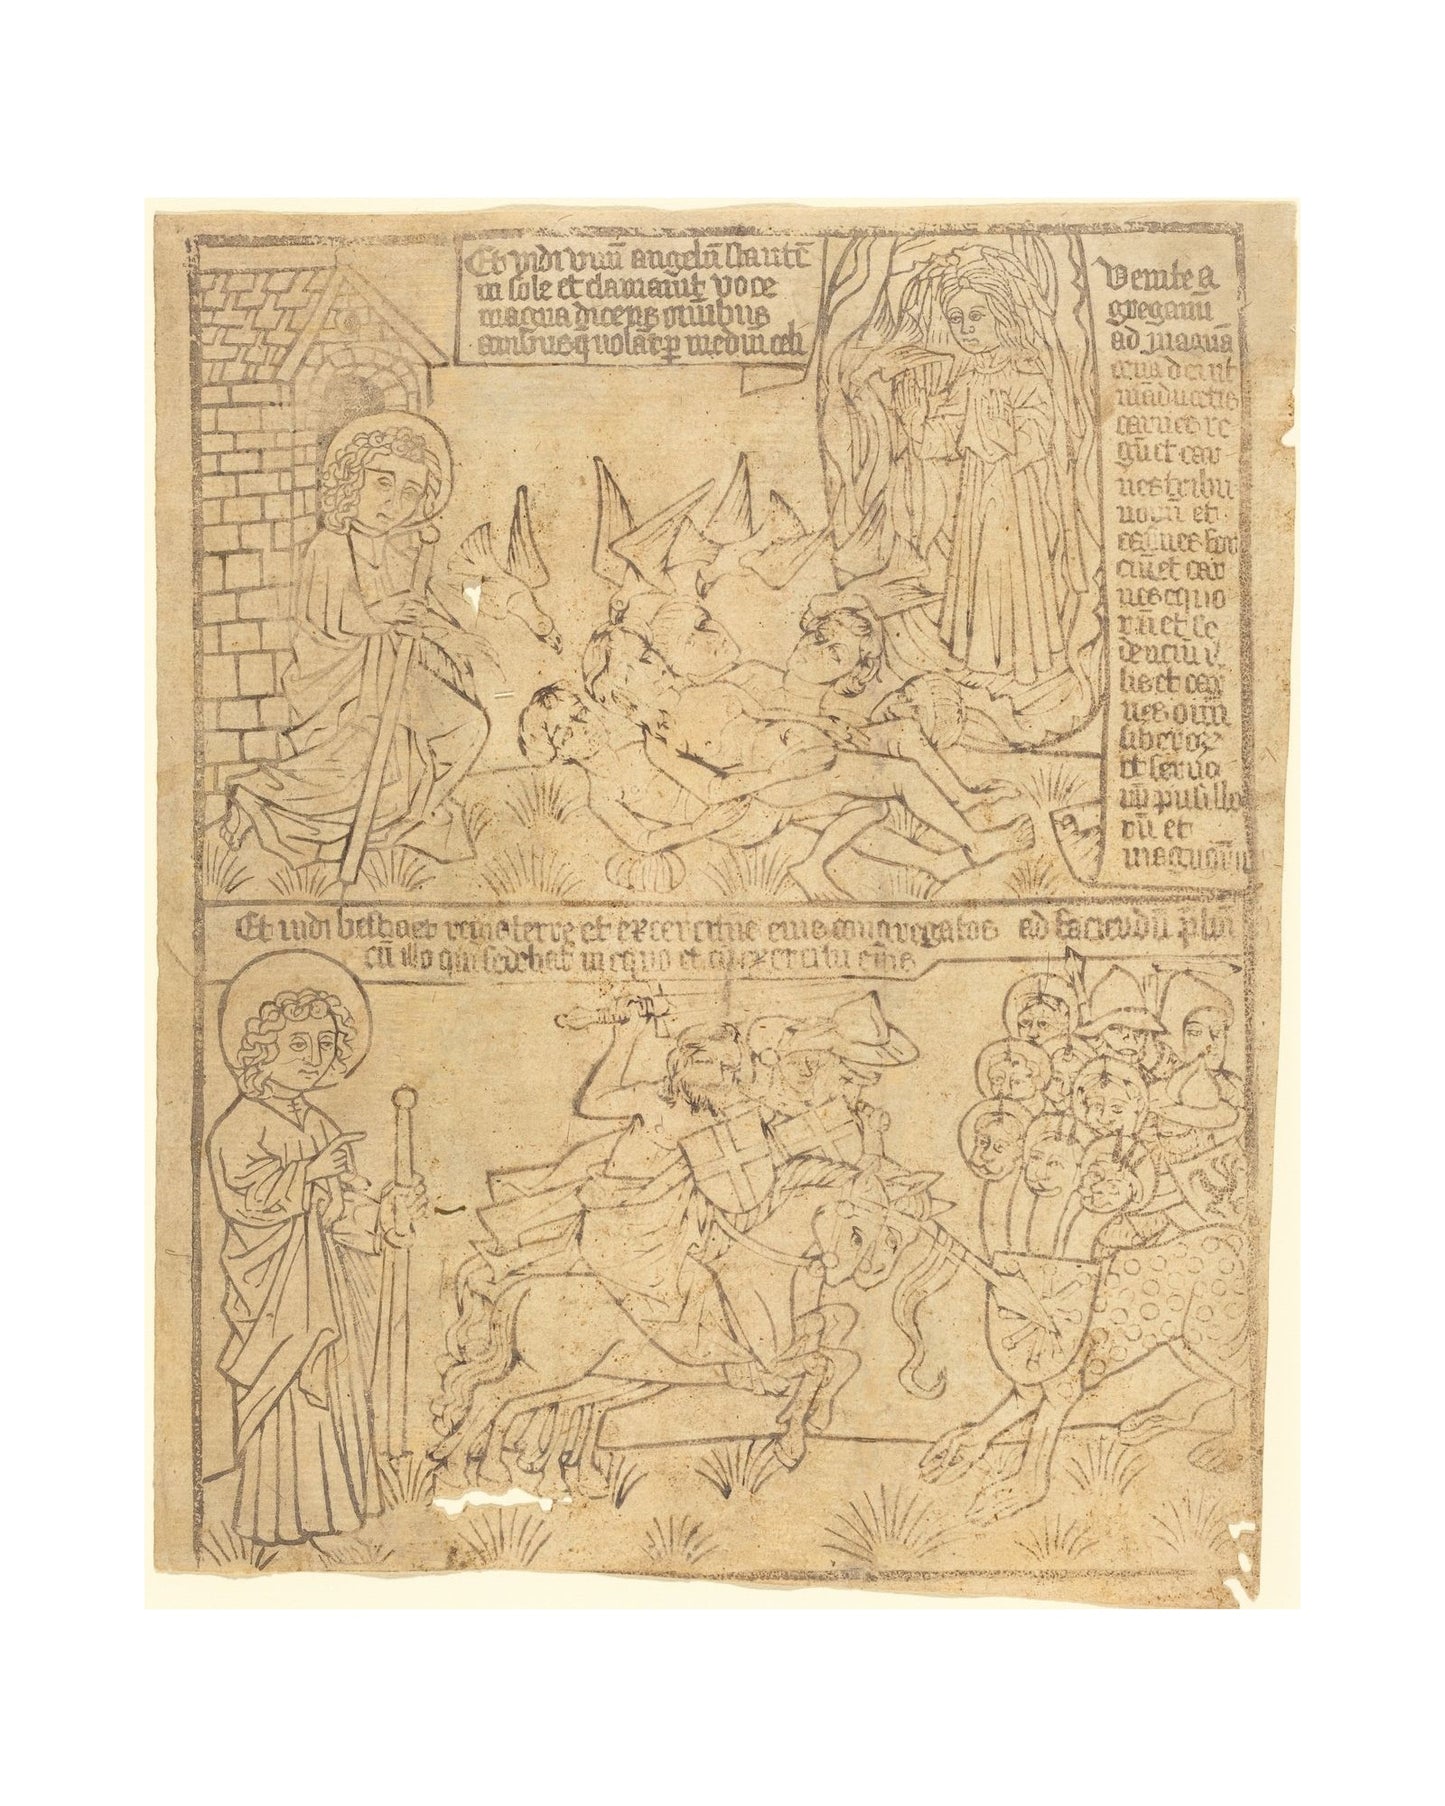 Et vidi vnū angelū stantē
in sole et clamauit voce
magna dicens omnibus
auibus q volāt p mediū celi
Venite ꝯ
gregamī
ad magnā
cenā dei ut
māducetis
carnes re
gū et car
nes tribu
norū et
carnes for
ciū et car
nes equo
rū et se
denciū ī
et car
nes oīm
liberoꝝ
et seruo
rū pusillo
rū et
magnorū
Et vidi bestiaȝ reges terre et exercitus eius congregatos ad faciendū pliū
cū illo qui sedebat in equo et cū exercitu eius